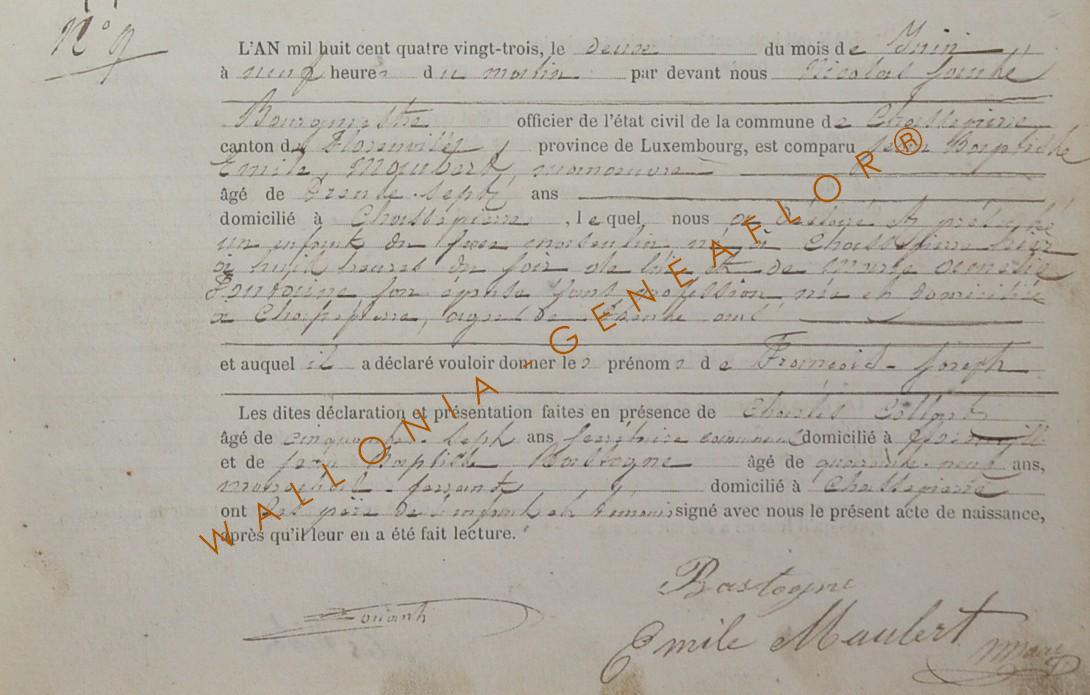 N° 9
L'AN mil huit cent quatre vingt-trois, le deux du mois de Juin
à neuf heures du matin par devant nous Nicolas
Bourgmestre officier de l'état civil de la commune de Chassepierre
canton de Florenville, province de Luxembourg, est comparu Jean Baptiste
Emile, Maubert, manœuvre
âgé de trente-sept ans
domicilié à Chassepierre, lequel nous a déclaré et présenté
un enfant du sexe masculin, né à Chassepierre hier
à huit heures du soir de lui et de Marie
Fontaine, son épouse sans profession, née et domiciliée
à Chassepierre, agée de trente ans
et auquel il a déclaré vouloir donner les prénoms de François-Joseph
Les dites déclaration et présentation faites en présence de Charles Collard
âgé de cinquante-sept ans secrétaire communal domicilié à Florenville
et de Jean Baptiste Bastogne âgé de quarante-neuf ans,
maréchal-ferrant domicilié à Chassepierre
ont les père de l'enfant et témoins signé avec nous le présent acte de naissance,
après qu'il leur en a été fait lecture.
Bastogne
Emile Maubert
WALLONIA - GENEAFLOR®